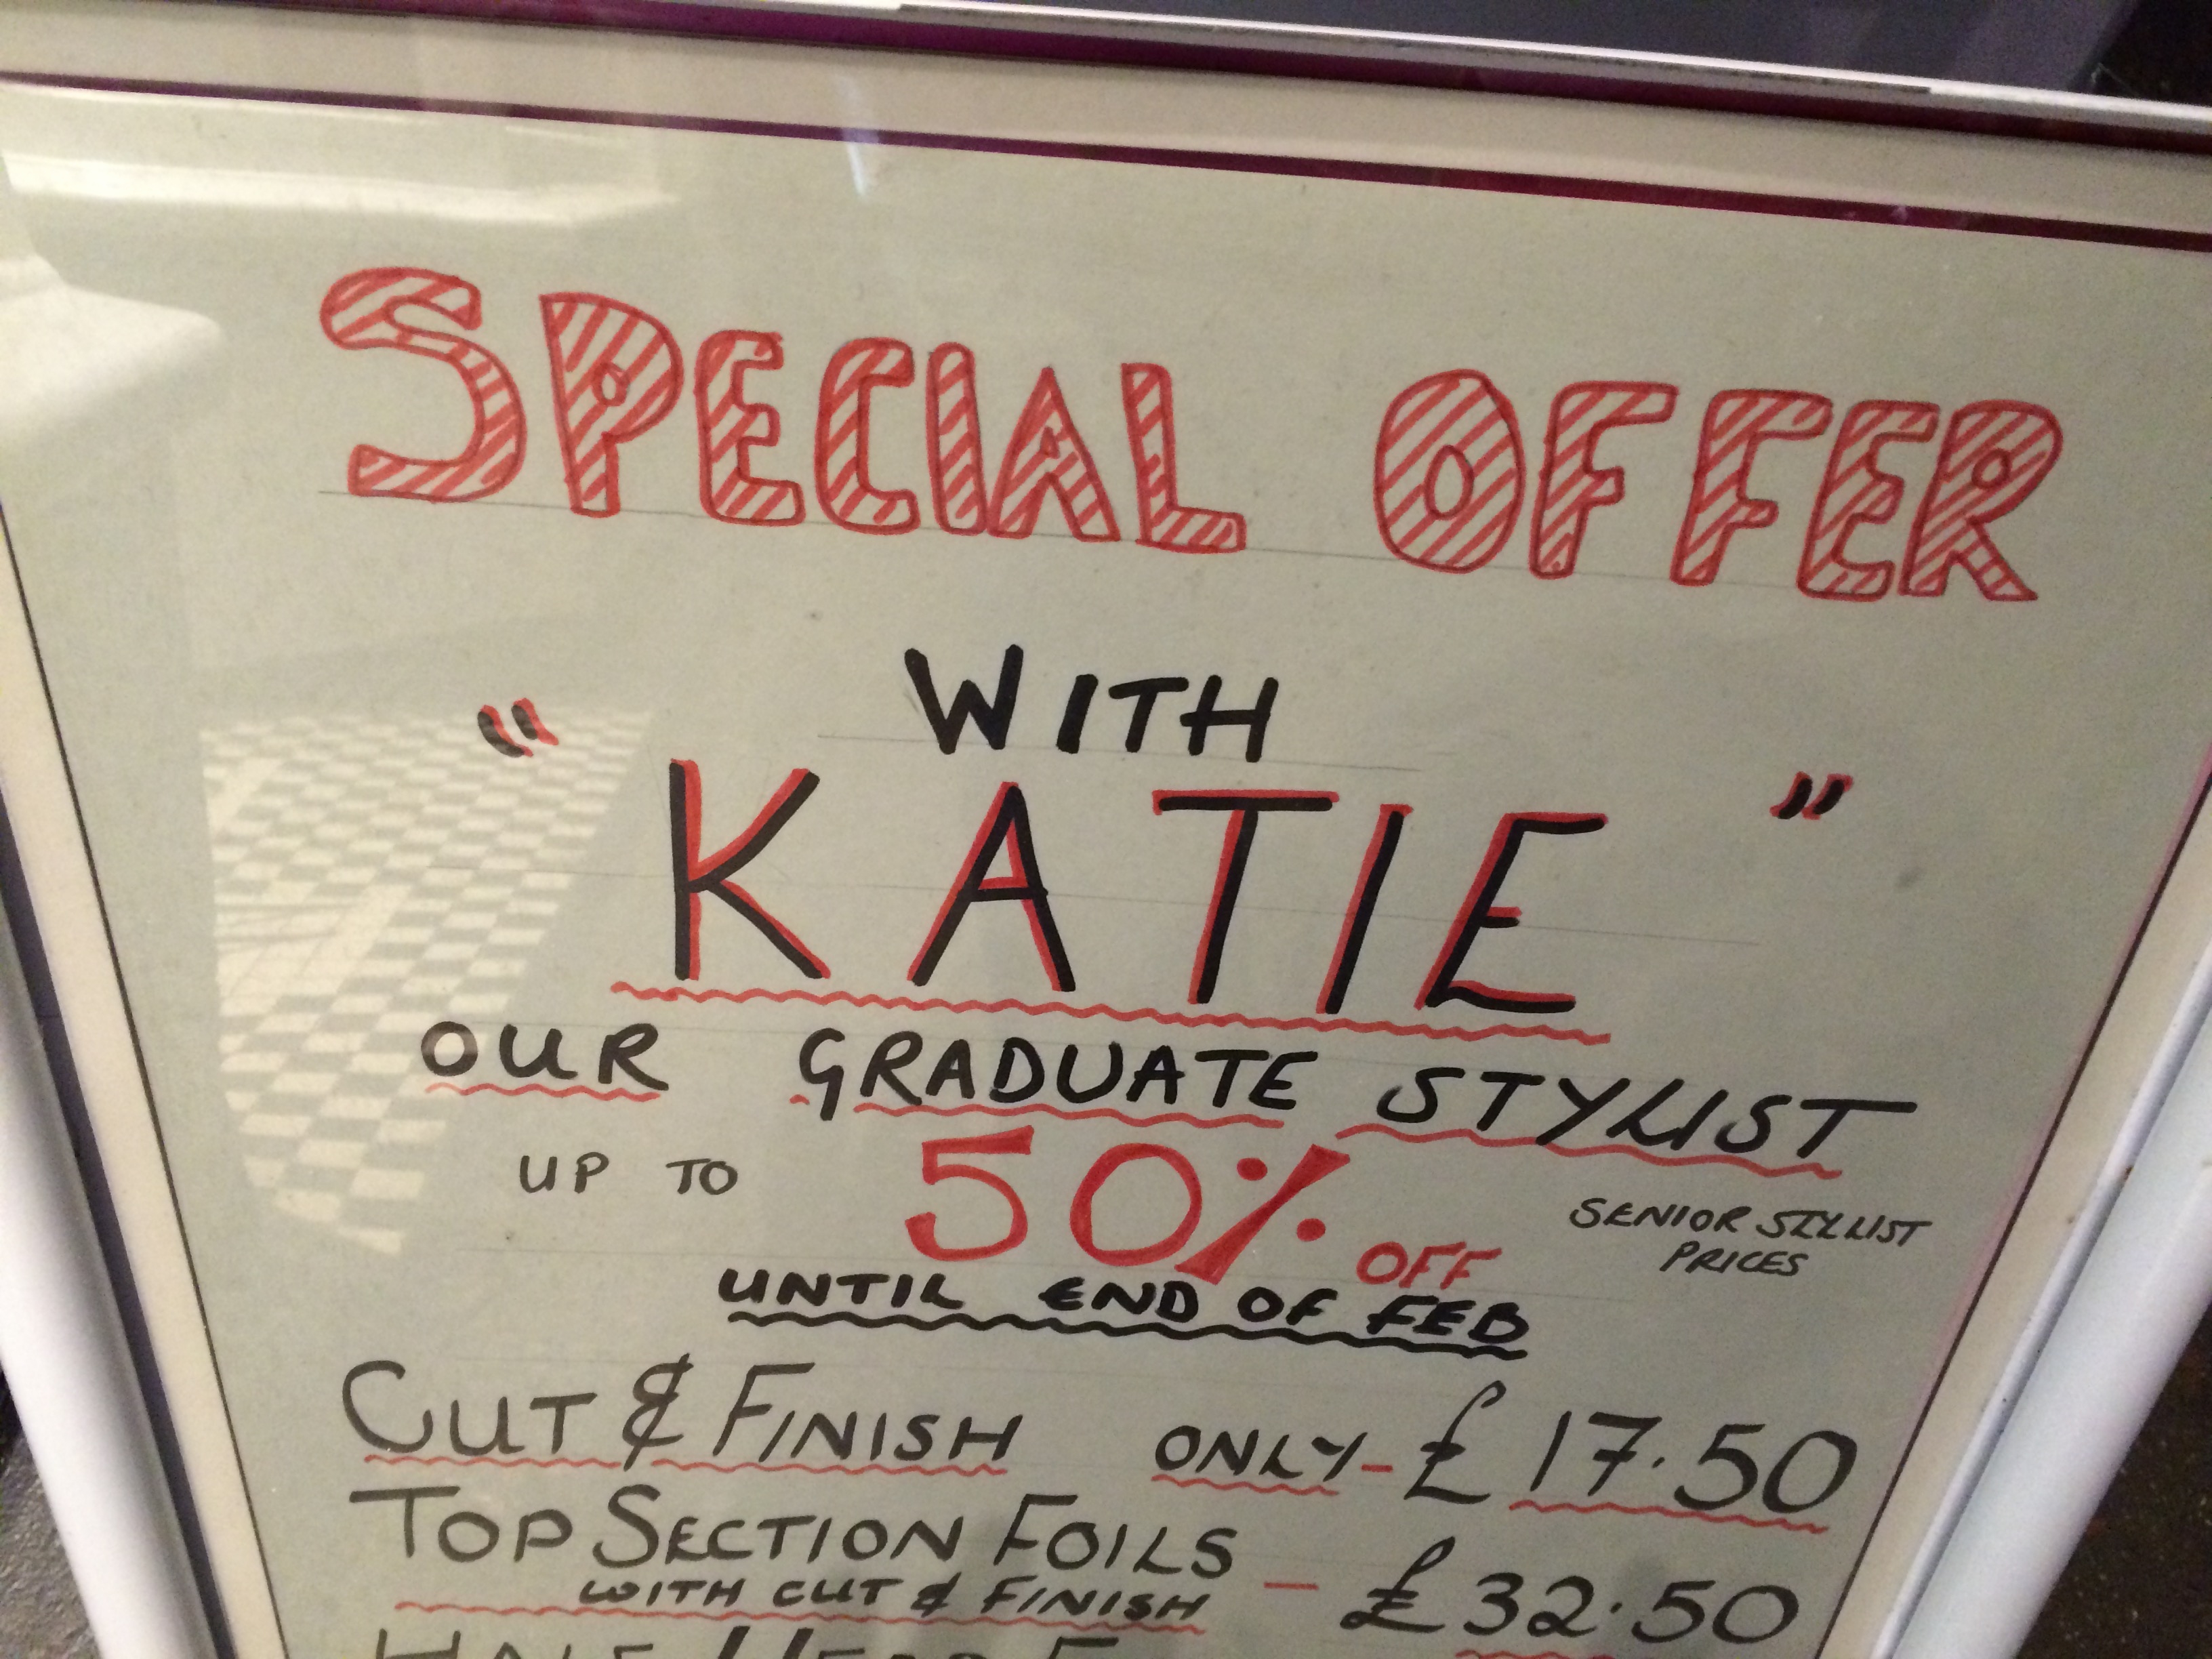 SPECIAL OFFER
WITH
"KATIE"
OUR GRADUATE STYLIST
UP TO 50% OFF SENIOR STYLIST PRICES
UNTIL END OF FEB
CUT & FINISH ONLY - £17.50
TOP SECTION FOILS
WITH CUT & FINISH - £32.50
HALF HEAD